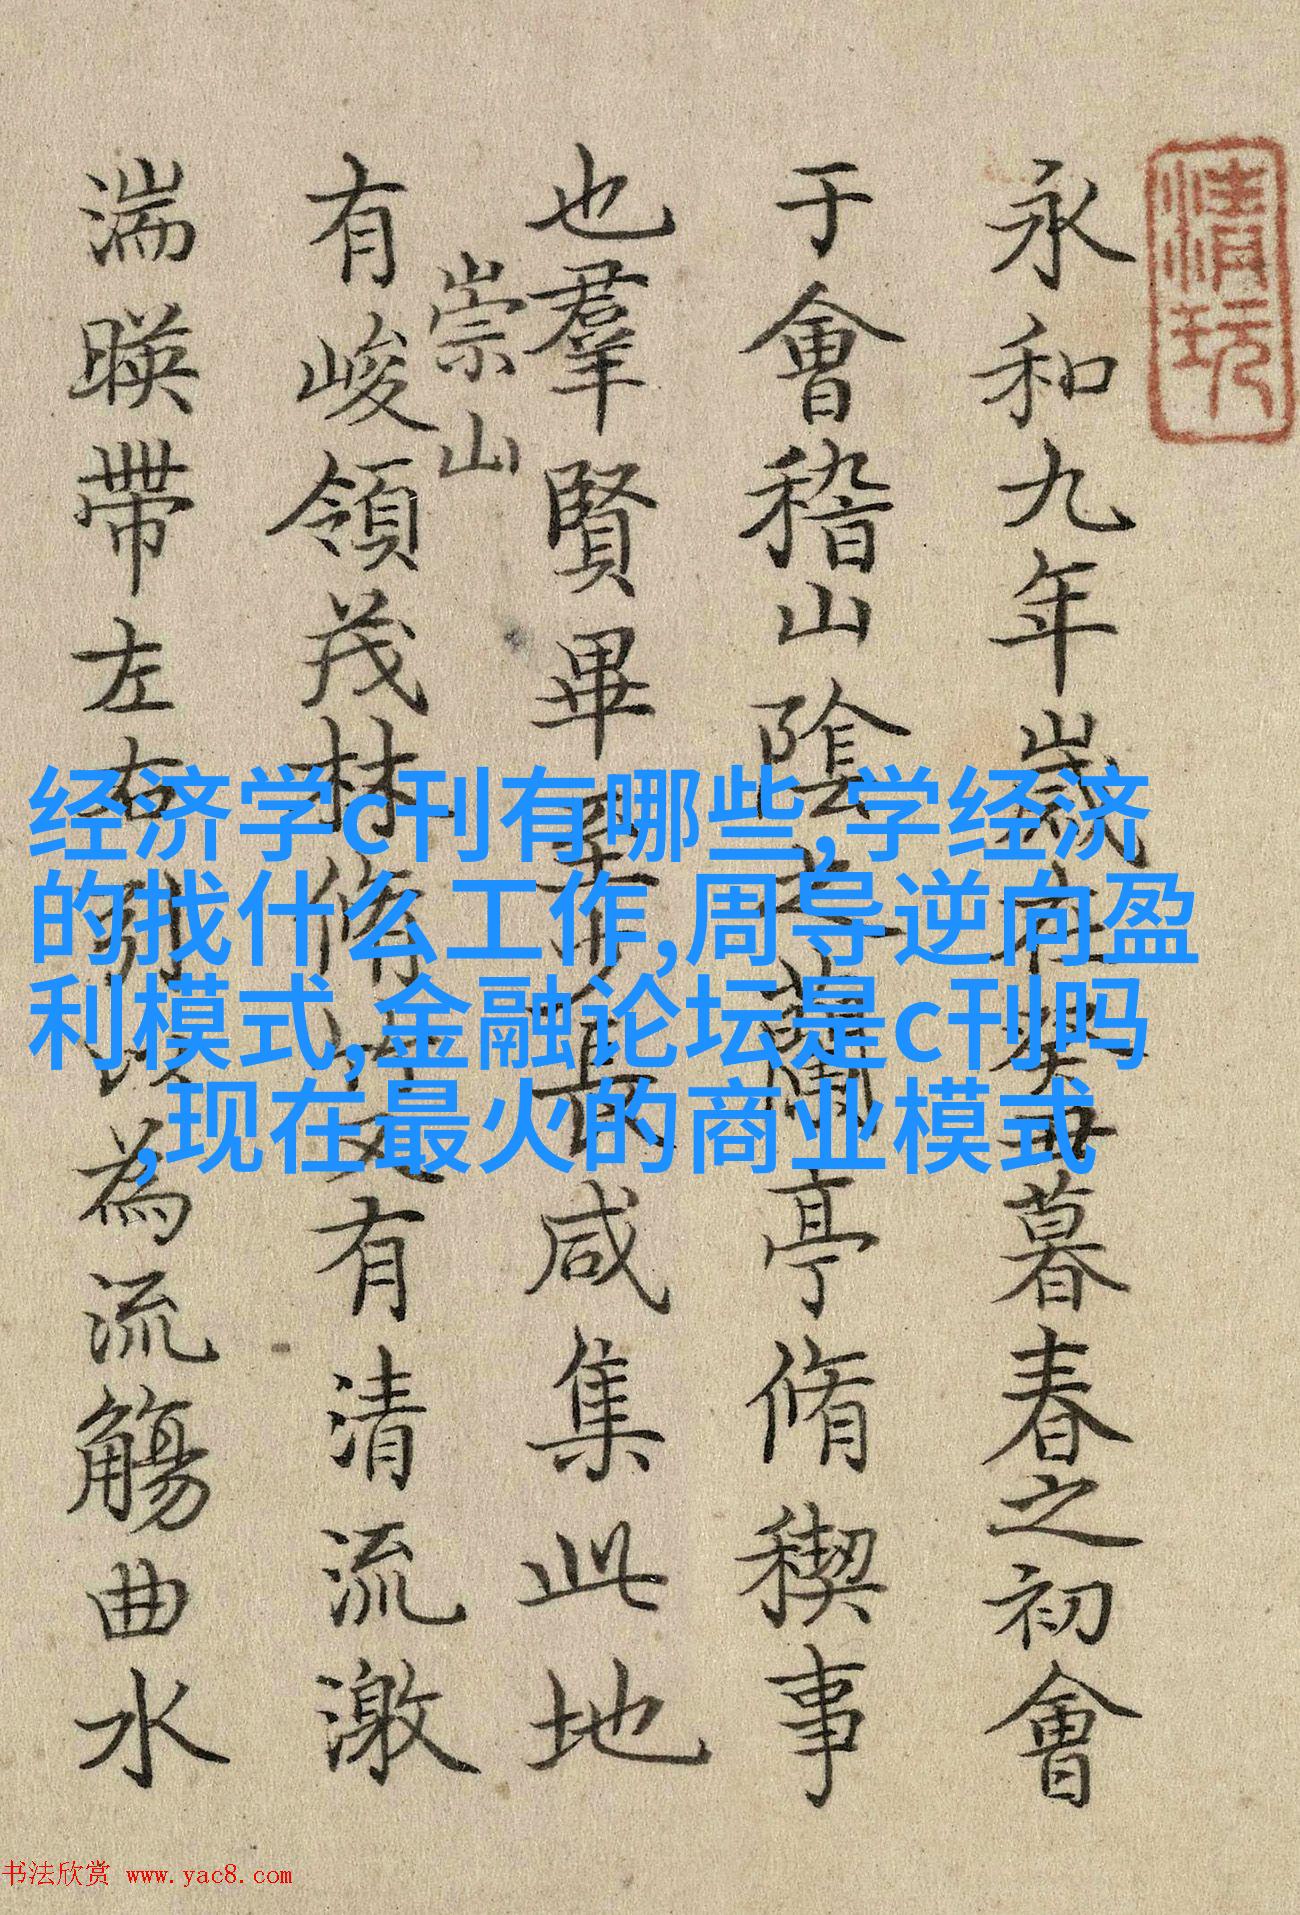 清玩
永和九年歲在癸丑暮春之初會
于會稽山陰之蘭亭脩稧事
也羣賢畢至少長咸集此地
崇山
有峻領茂林脩竹又有清流激
湍暎帶左右引以為流觴曲水
经济学c刊有哪些,学经济
的找什么工作,周导逆向盈
利模式,金融论坛是c刊吗
,现在最火的商业模式
书法欣赏 www.yac8.com